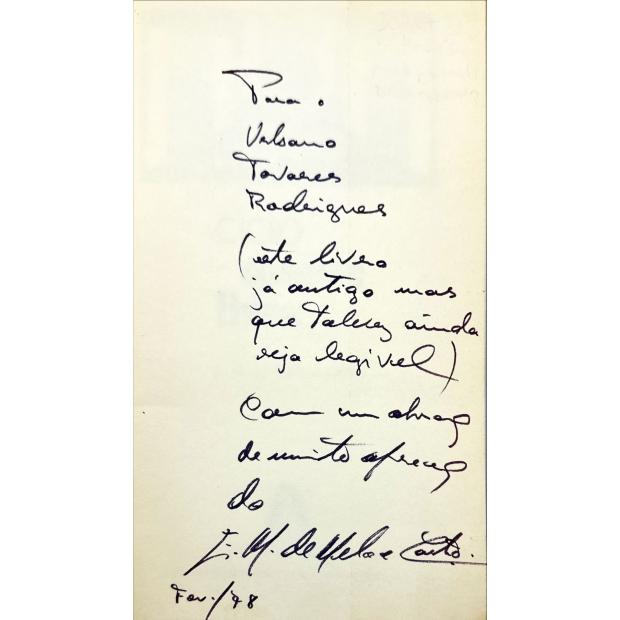 Para o
Urbano
Tavares
Rodrigues
(este livro
já antigo mas
que talvez ainda
seja legível)
Com um abraço
de muito apreço
do
E. M. de Melo e Castro.
Fev./98